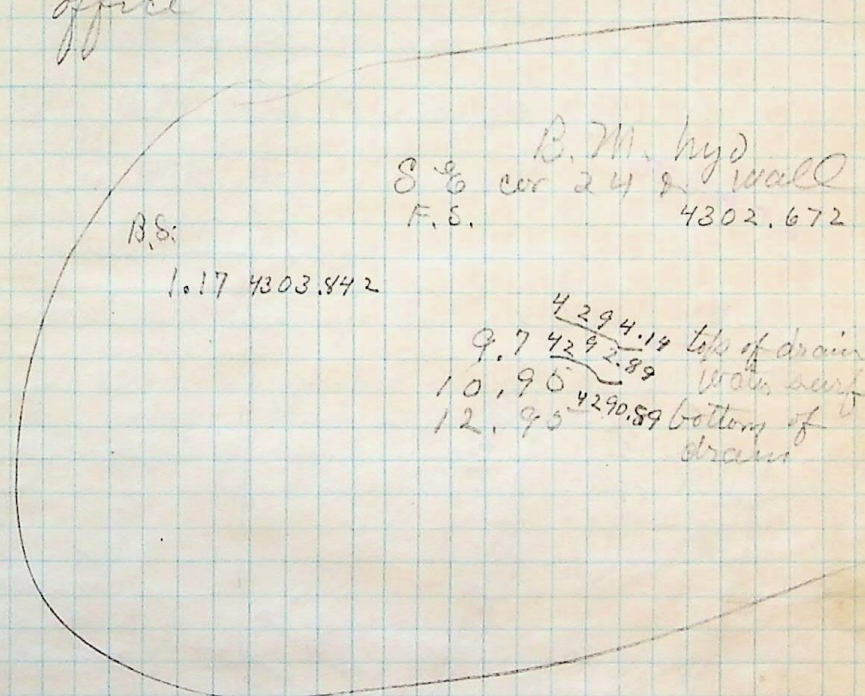 office
B. M. hyd
S E cor 24 & Wall
F. S. 4302.672
B.S.
1.17 4303.842
4294.14
9.7 top of drain
4292.89
10.95 water surf
4290.89
12.95 bottom of
drain